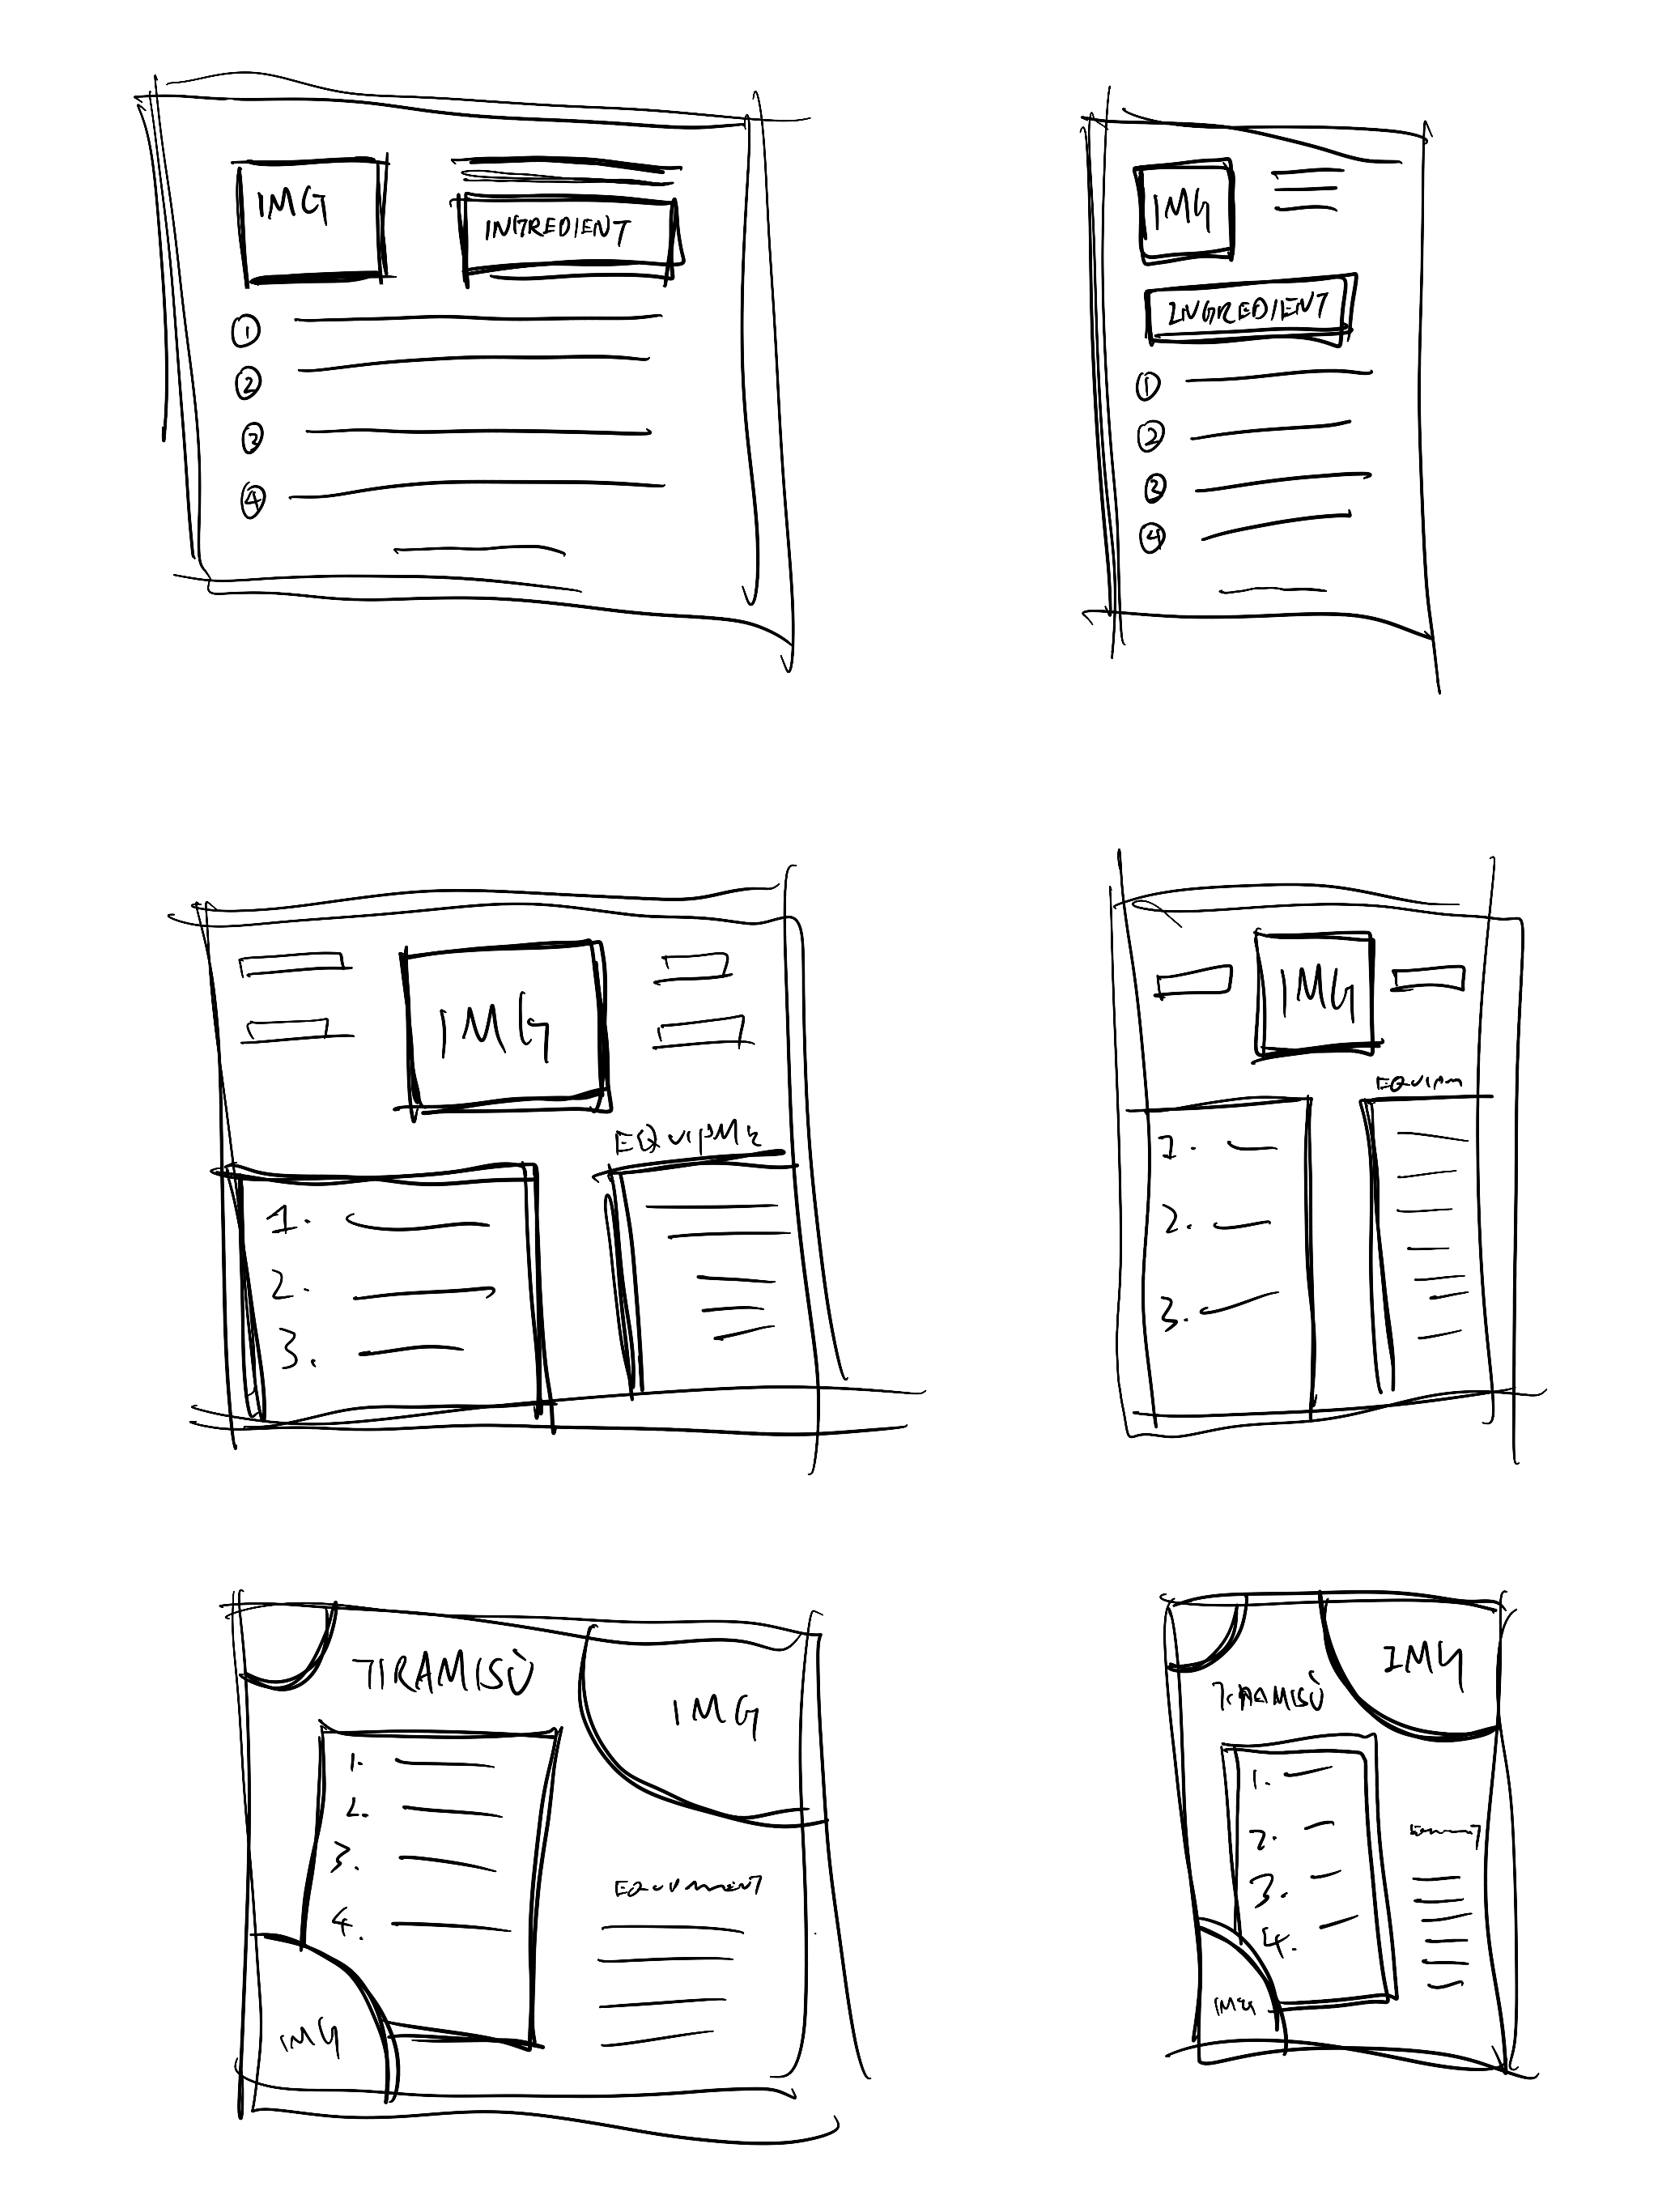 IMG
INGREDIENT
1
2
3
4
IMG
INGREDIENT
1
2
3
4
IMG
1.
2.
3.
IMG
EQUIPM
1.
2.
3.
TIRAMISÙ
IMG
1.
2.
3.
4.
EQUIPMENT
IMG
IMG
TIRAMISÙ
1.
2.
3.
4.
IMG